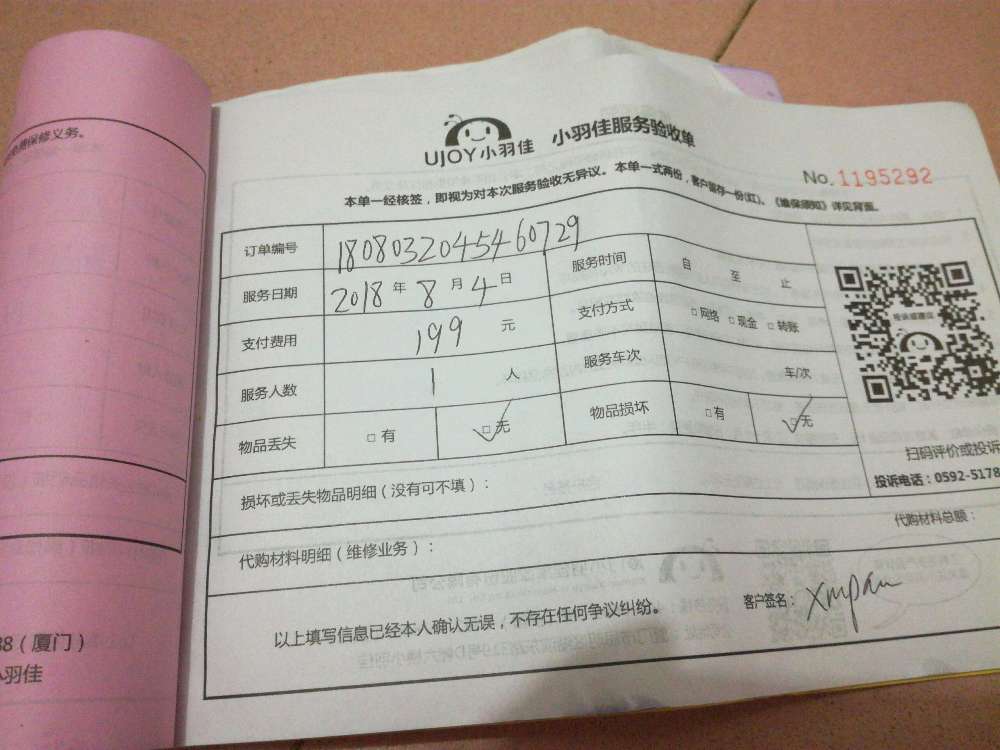 免费保修义务。
UJOY小羽佳 小羽佳服务验收单
No.1195292
本单一经核签，即视为对本次服务验收无异议。本单一式两份，客户留存一份(红)。《维保须知》详见背面。
订单编号 1808032045460729
服务日期 2018 年 8 月 4 日 服务时间 自 至 止
支付费用 199 元 支付方式 □网络 □现金 □转账
服务人数 1 人 服务车次 车/次
物品丢失 □有 □无 物品损坏 □有 □无
扫码评价或投诉
投诉电话：0592-5178
损坏或丢失物品明细（没有可不填）：
代购材料明细（维修业务）： 代购材料总额：
以上填写信息已经本人确认无误，不存在任何争议纠纷。 客户签名： xmpan
88（厦门）
小羽佳